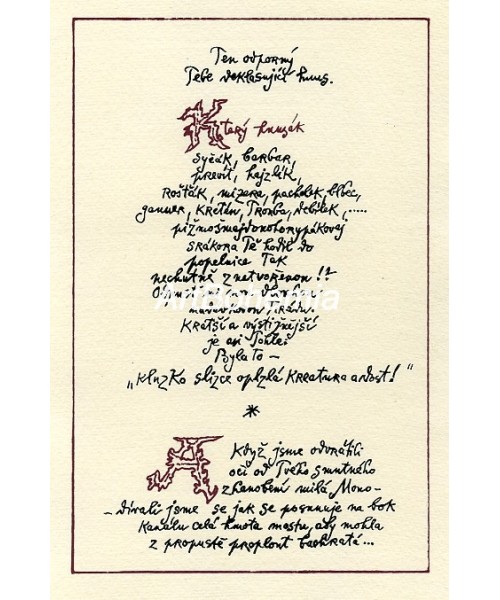 Ten odporný
Tebe deklasující hnus.
Který hnusák
syčák, barbar,
prevít, hajzlík,
Rošťák, mizera, pacholek, blbec,
gauner, Kretén, Tronba, debílek, .....
pižmošmajdonohorypákovej
srákora Tě hodil do
popelnice tak
nechutně znetvořenou!?
ArtBohemia
Kratší a výstižnější
je asi
Byla to –
„Kluzko slizce oplzlá Kreatura a dost!"
*
A Když jsme odvrátili
oči od Tvého smutného
zhanobení milá Mono-
– dívali jsme se jak se posunuje na bok
Kanálu celá hmota mostu, aby mohla
z propustě proplout bachratá...